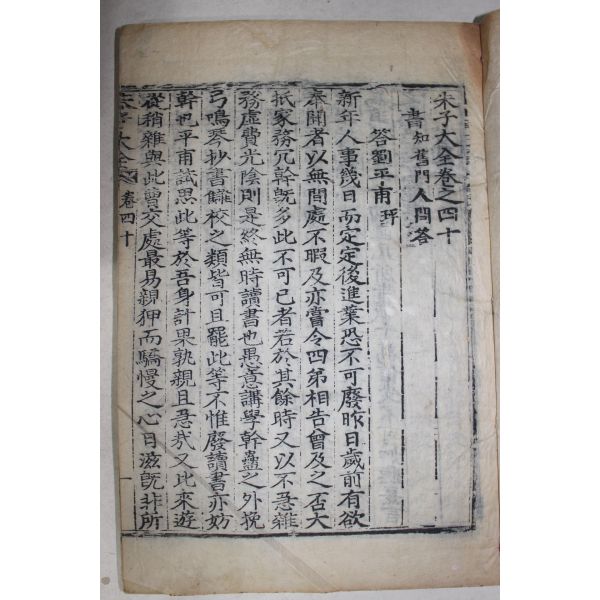 朱子大全卷之四十
書 知舊門人問答
答劉平甫 玶
新年人事幾日而定定後進業恐不可廢昨日歲前有欲
奉聞者以無間處不暇及亦嘗令四弟相告曾及之否大
抵家務冗幹旣多此不可已者若於其餘時又以不急雜
務虛費光陰則是終無時讀書也愚意講學幹蠱之外挽
弓鳴琴抄書讎校之類皆可且罷此等不惟廢讀書亦妨
幹也平甫試思此等於吾身計果孰親且急哉又比來遊
從稍雜與此曹交處最易親狎而驕慢之心日滋旣非所
朱子大全 卷四十 一